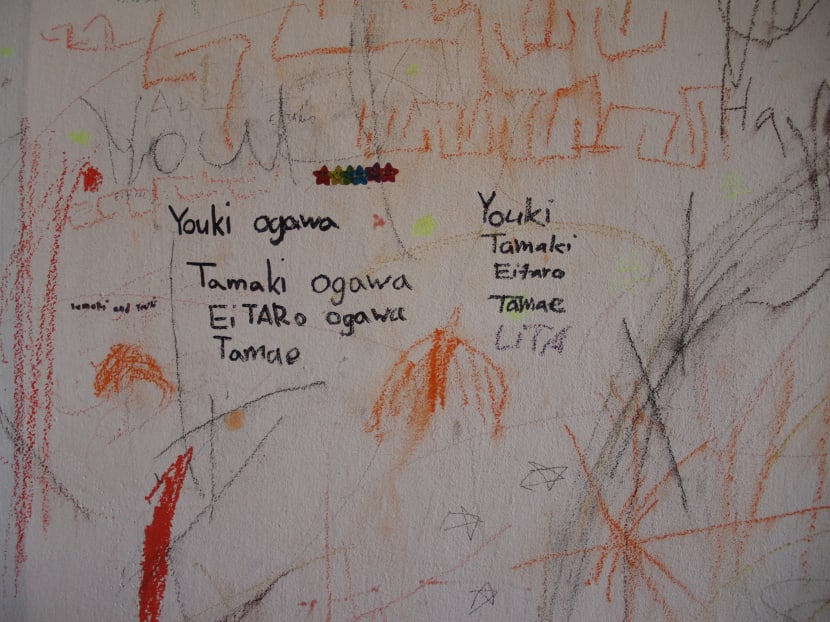 Youki
Youki ogawa
Tamaki ogawa
EiTARo ogawa
Tamae
Youki
Tamaki
Eitaro
Tamae
LiTA